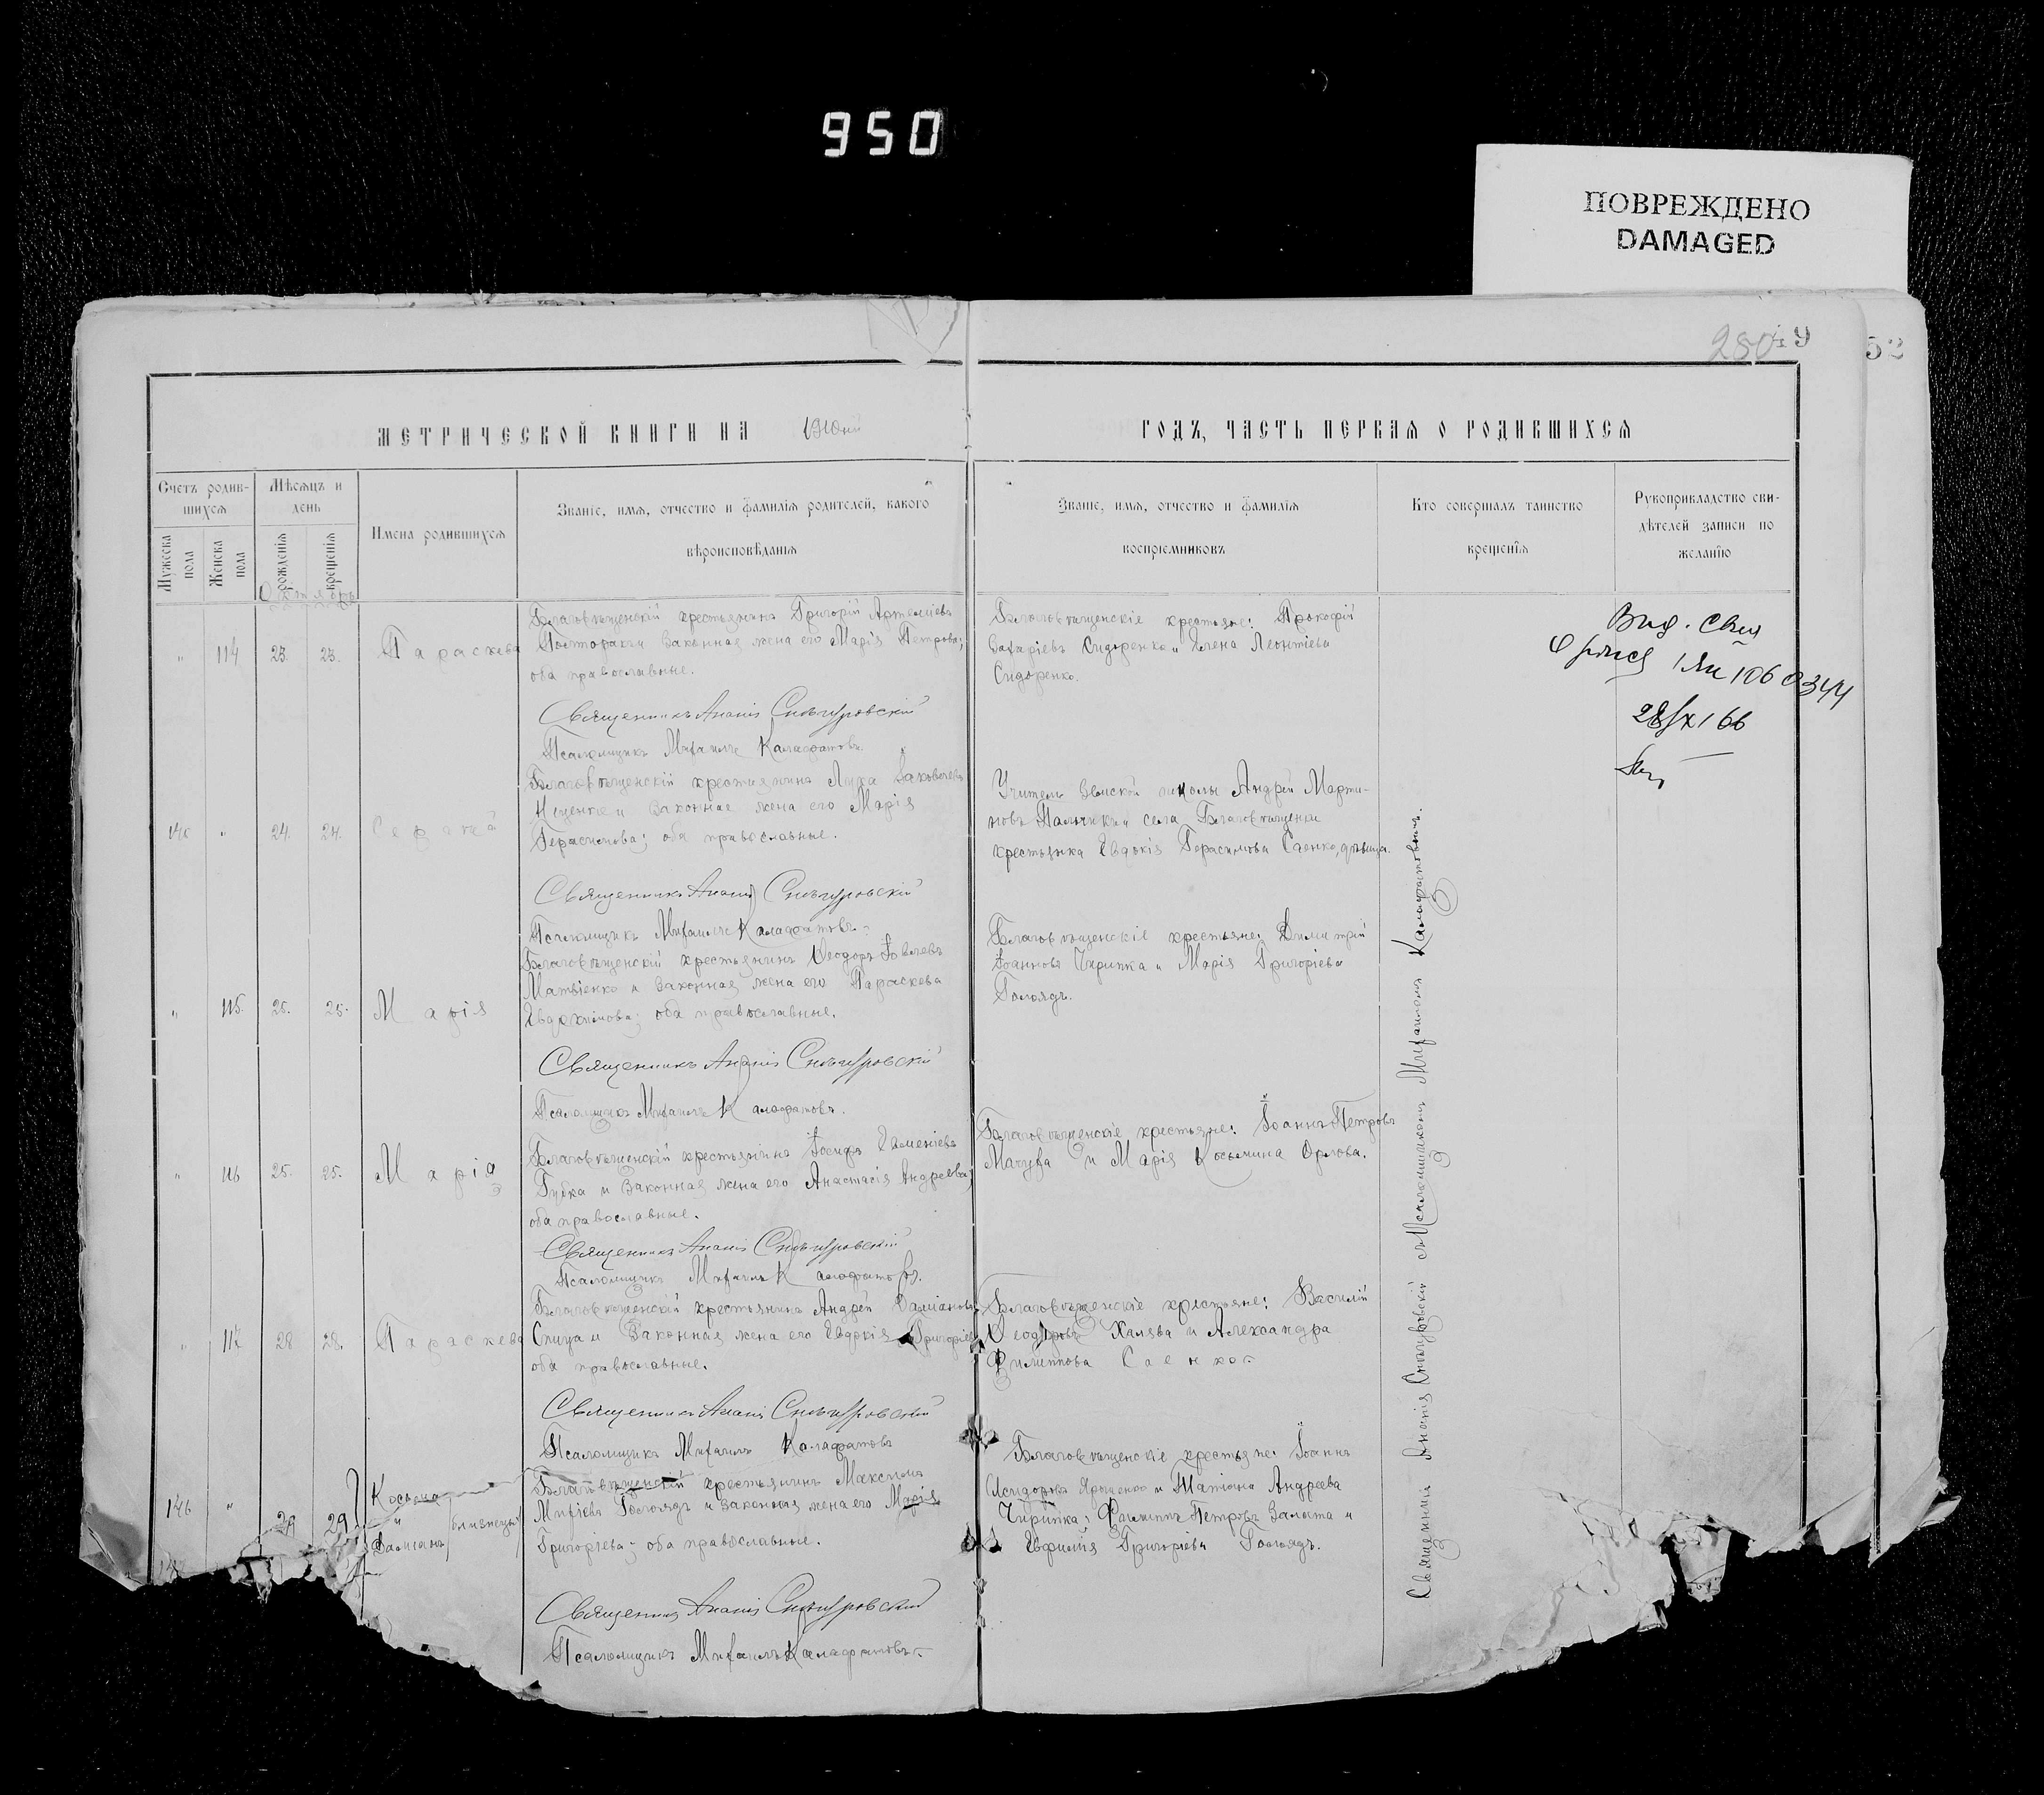 950
ПОВРЕЖДЕНО
DAMAGED
280
49
52
МЕТРИЧЕСКОЙ КНИГИ НА 1910й ГОДЪ, ЧАСТЬ ПЕРВАЯ О РОДИВШИХСЯ
Счетъ родив-
шихся
Мужеска
пола
Женска
пола
Мѣсяцъ и
день
рожденія
крещенія
Имена родившихся
Званіе, имя, отчество и фамилія родителей, какого
вѣроисповѣданія
Званіе, имя, отчество и фамилія
воспріемниковъ
Кто совершалъ таинство
крещенія
Рукоприкладство сви-
дѣтелей записи по
желанію
Октябрь
" 114 23. 23. Параскева
Благовѣщенскій крестьянинъ Григорій Артеміевъ
и законная жена его Марія Петрова;
оба православные.
Священникъ Ананія Снѣгуровскій
Псаломщикъ Михаилъ Калафатовъ.
Благовѣщенскіе крестьяне: Прокофій
Захаріевъ Сидоренко и Елена Леонтіева
Сидоренко.
28/XI 66
" 24. 24. Сергій
Благовѣщенскій крестьянинъ Лука Іаковлевъ
Ищенко и законная жена его Марія
Герасимова; оба православные.
Священникъ Ананія Снѣгуровскій
Псаломщикъ Михаилъ Калафатовъ.
Учитель земской школы Андрей Марти-
новъ Пальчикъ и села Благовѣщенки
крестьянка Евдокія Герасимова Саенко, дѣвица.
" 115. 25. 25. Марія
Благовѣщенскій крестьянинъ Ѳеодоръ Іовлевъ
Матвіенко и законная жена его Параскева
Евдокимова; оба православные.
Священникъ Ананія Снѣгуровскій
Псаломщикъ Михаилъ Калафатовъ.
Благовѣщенскіе крестьяне: Димитрій
Іоанновъ Чирипка и Марія Григоріева
Голоядъ.
" 116 25. 25. Марія
Благовѣщенскій крестьянинъ Іосифъ Евменіевъ
Губка и законная жена его Анастасія Андреева;
оба православные.
Священникъ Ананія Снѣгуровскій
Псаломщикъ Михаилъ Калафатовъ.
Благовѣщенскіе крестьяне: Іоаннъ Петровъ
Мачуха и Марія Косьмина Орлова.
" 117 28 28. Параскева
Благовѣщенскій крестьянинъ Андрей Даміановъ
Спица и законная жена его Евдокія Григоріева
оба православные.
Священникъ Ананія Снѣгуровскій
Псаломщикъ Михаилъ Калафатовъ
Благовѣщенскіе крестьяне: Василій
Ѳеодоровъ Халява и Александра
Филиппова Саенко.
146 " 29 29 Косьма
и
Даміанъ
близнецы
Благовѣщенскій крестьянинъ Максимъ
Голоядъ и законная жена его Марія
Григоріева; оба православные.
Священникъ Ананія Снѣгуровскій
Псаломщикъ Михаилъ Калафатовъ.
Благовѣщенскіе крестьяне: Іоаннъ
Исидоровъ Ярошенко и Татіана Андреева
Чирипка; Филиппъ Петровъ и
Евфимія Григоріева Голоядъ.
Священникъ Ананія Снѣгуровскій съ Псаломщикомъ Михаиломъ Калафатовымъ.